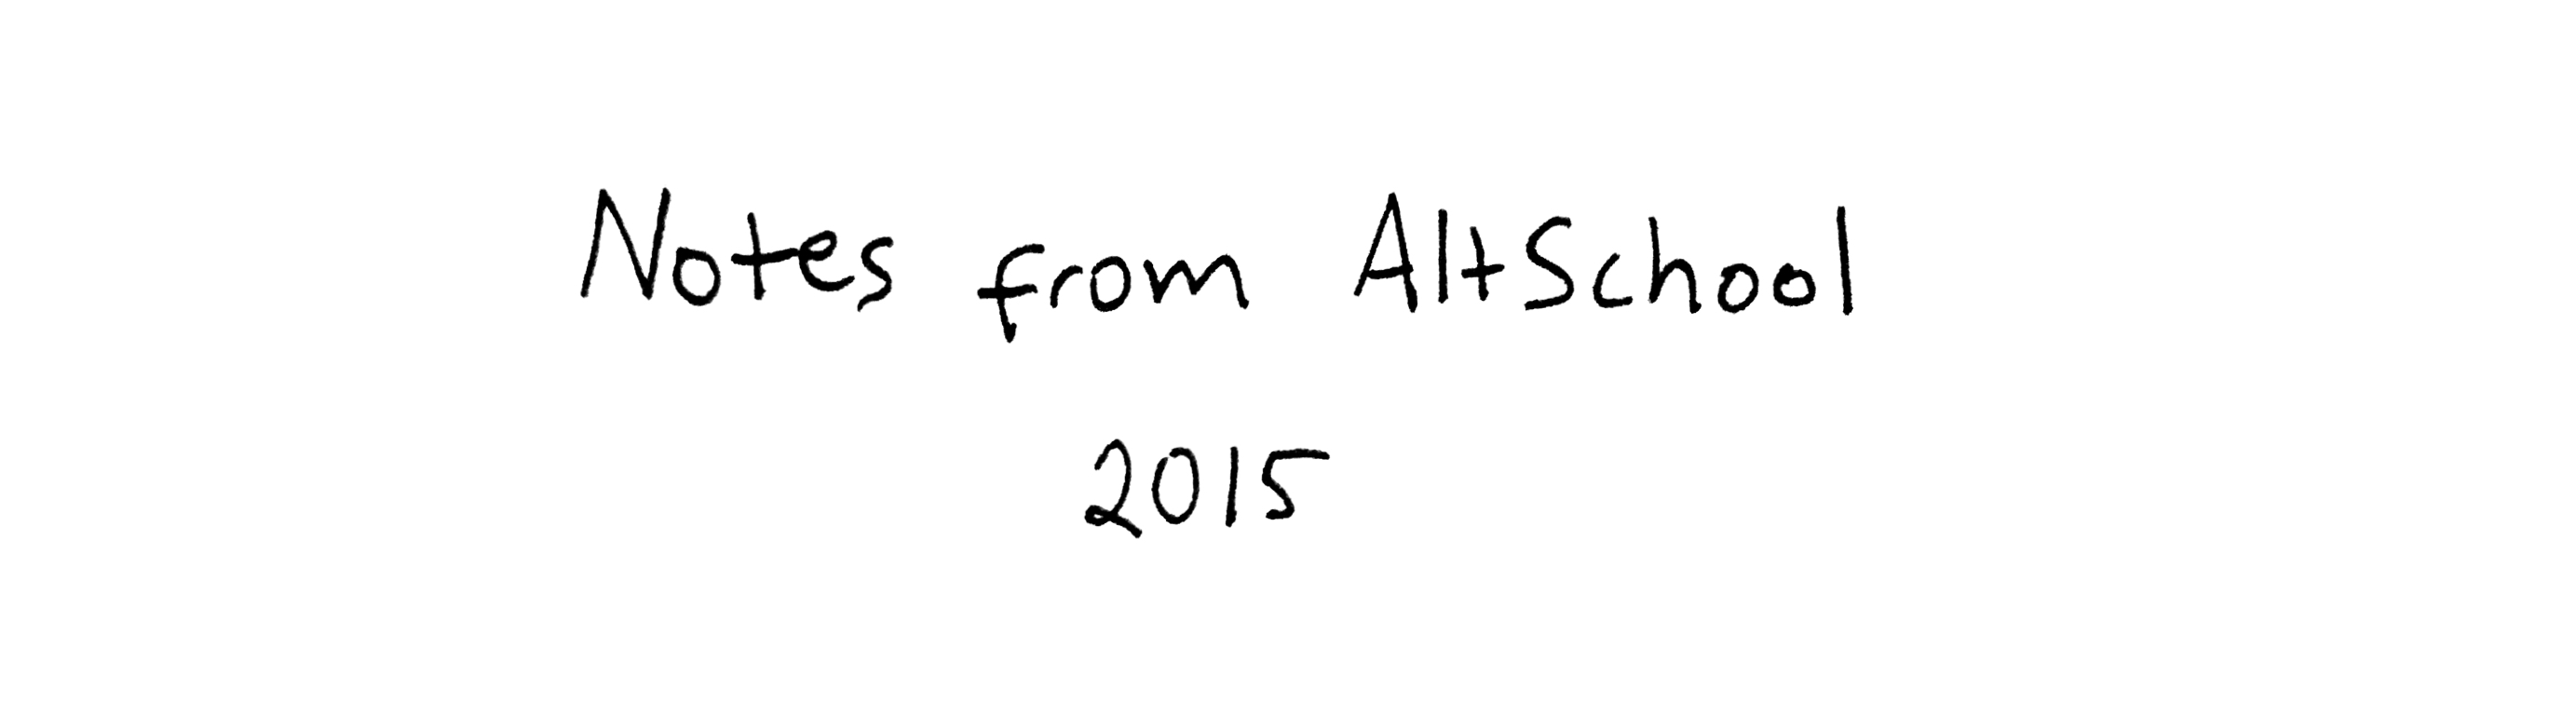 Notes from AltSchool
2015